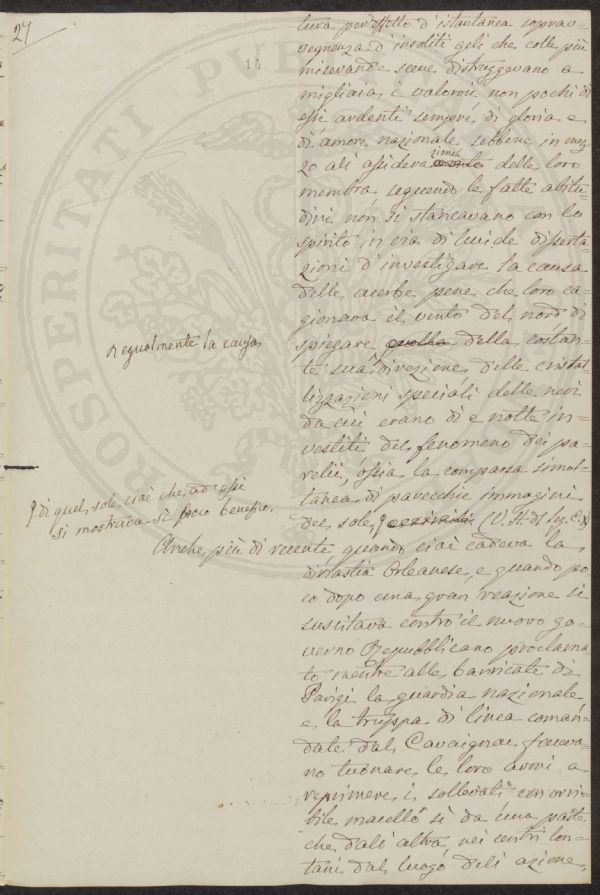 27
14
tura per effetto d'istantanea soprav-
vegnenza d'insoliti geli che colle più
miserande scene, distruggevano a
migliaia i valorosi non pochi di
essi ardenti sempre, di gloria e
di amore nazionale sebbene in mez
zo ali assidera zione delle loro
membra seguendo le fatte abitu-
dini non si stancavano con lo
spirito in via di lucide disserta-
zioni d'investigare la causa
delle acerbe pene che loro ca-
gionava il vento del nord di
spiegare quella della costan-
te sua direzione delle cristal
lizzazioni speciali delle nevi
da cui erano dì e notte in-
vestiti del fenomeno dei pa-
relii, ossia la comparsa simul-
tanea di parecchie immagini
del sole,
egualmente la causa
di quel sole cioè che ad essi
si mostrava sì poco benefico,
Anche più di recente quando cioè cadeva la
dinastia Orleanese, e quando po
co dopo una gran reazione si
suscitava contro il nuovo go-
verno Repubblicano proclama-
to mentre alle barricate di
Parigi la guardia nazionale
e la truppa di linea coman-
date dal Cavaignac faceva-
no tuonare le loro armi a
reprimere i sollevati con orri-
bile macello sì da una parte
che dali altra, nei centri lon-
tani dal luogo deli azione,
PROSPERITATI PVB